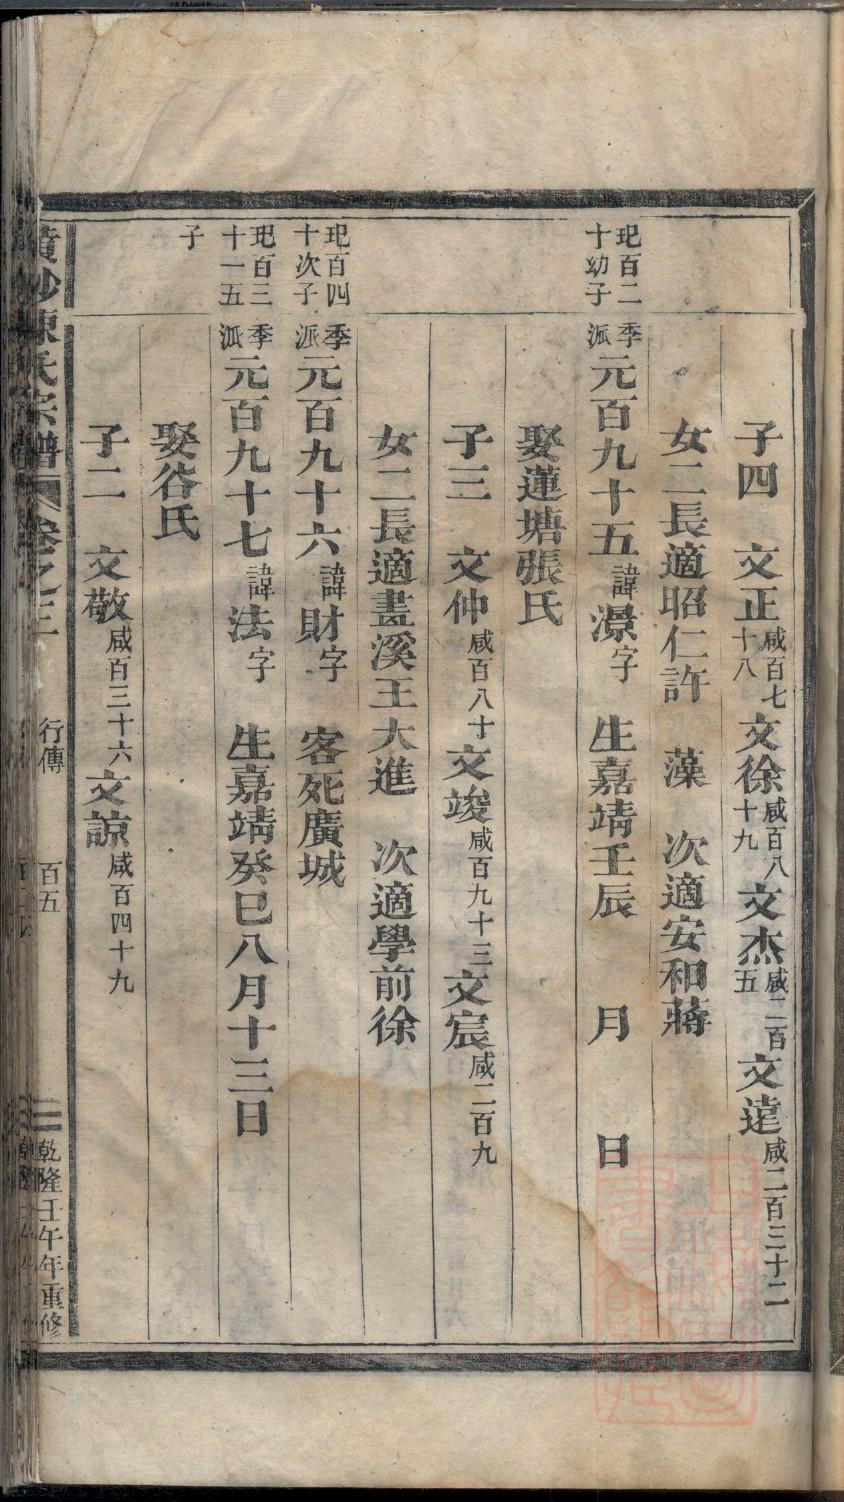 子四　文正咸百七十八文徐咸百八十九文杰咸二百五文遠咸二百三十二
女二長適昭仁許　藻　次適安和蔣
玘百二十幼子
季派元百九十五諱澋字　生嘉靖壬辰　月　日
娶蓮塘張氏
子三　文仲咸百八十文竣咸百九十三文宸咸二百九
女二長適畫溪王大進　次適學前徐
玘百四十次子
季派元百九十六諱財字　客死廣城
玘百三十一五子
季派元百九十七諱法字　生嘉靖癸巳八月十三日
娶谷氏
子二　文敬咸百三十六文諒咸百四十九
陳氏宗譜　卷之三　行傳　百五　乾隆壬午年重修